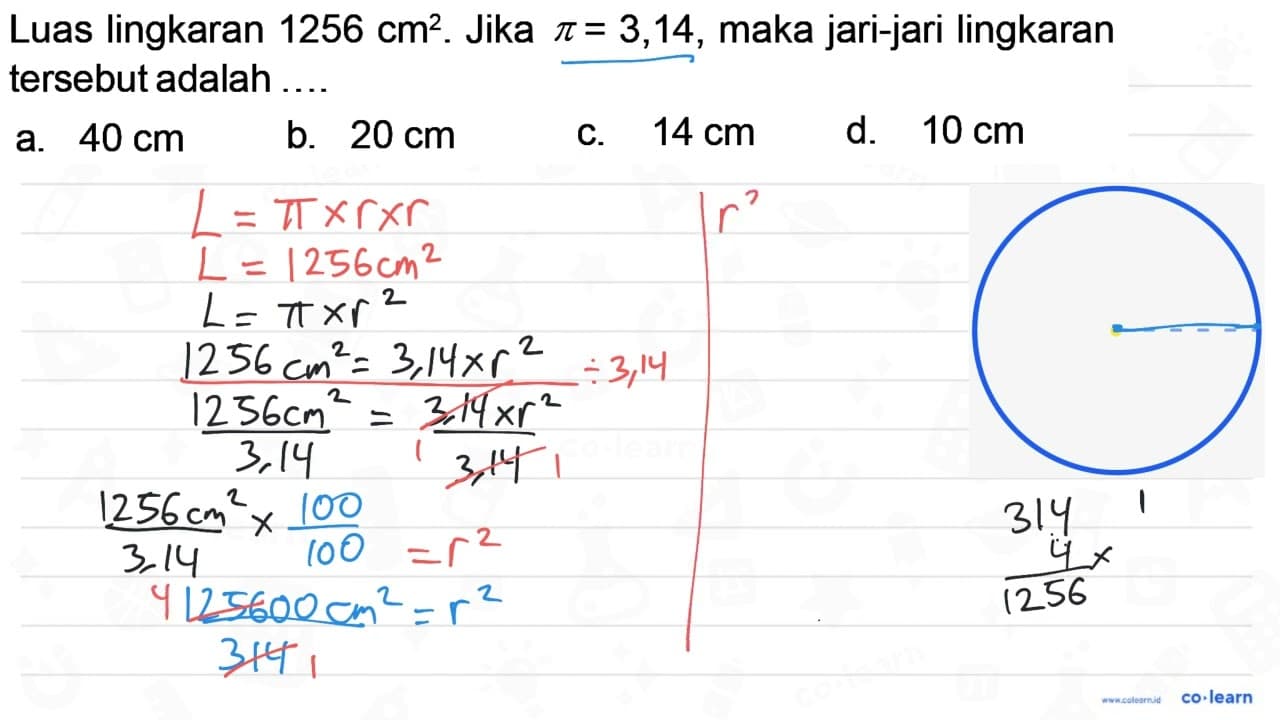 Luas lingkaran 1256 cm². Jika π = 3,14, maka jari-jari lingkaran
tersebut adalah ....
a. 40 cm b. 20 cm c. 14 cm d. 10 cm
L = π × r × r
L = 1256 cm²
L = π × r²
1256 cm² = 3,14 × r² ÷ 3,14
1256 cm² / 3,14 = 3,14 × r² / 3,14
1 1
1256 cm² / 3,14 × 100 / 100 = r²
4 125600 cm² / 314 = r²
1
r²
314 1
4 ×
1256
www.colearn.id co·learn